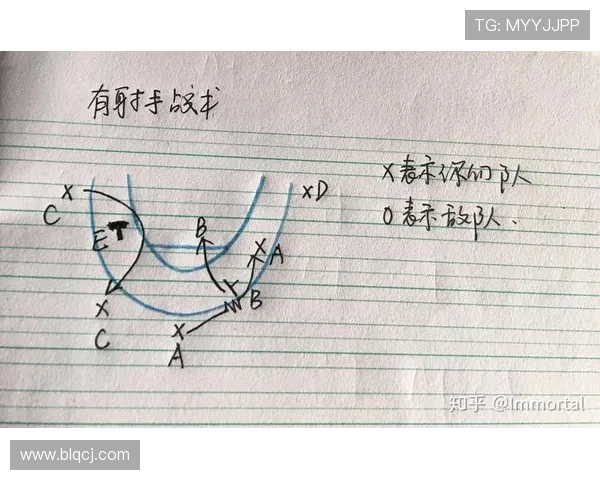 TG: MYYJJPP
有射手战术
X表示你的队
O表示敌队.
X
C
E
B
X
A
XD
X
C
X
A
B
知乎 @Immortal
www.blqcj.com